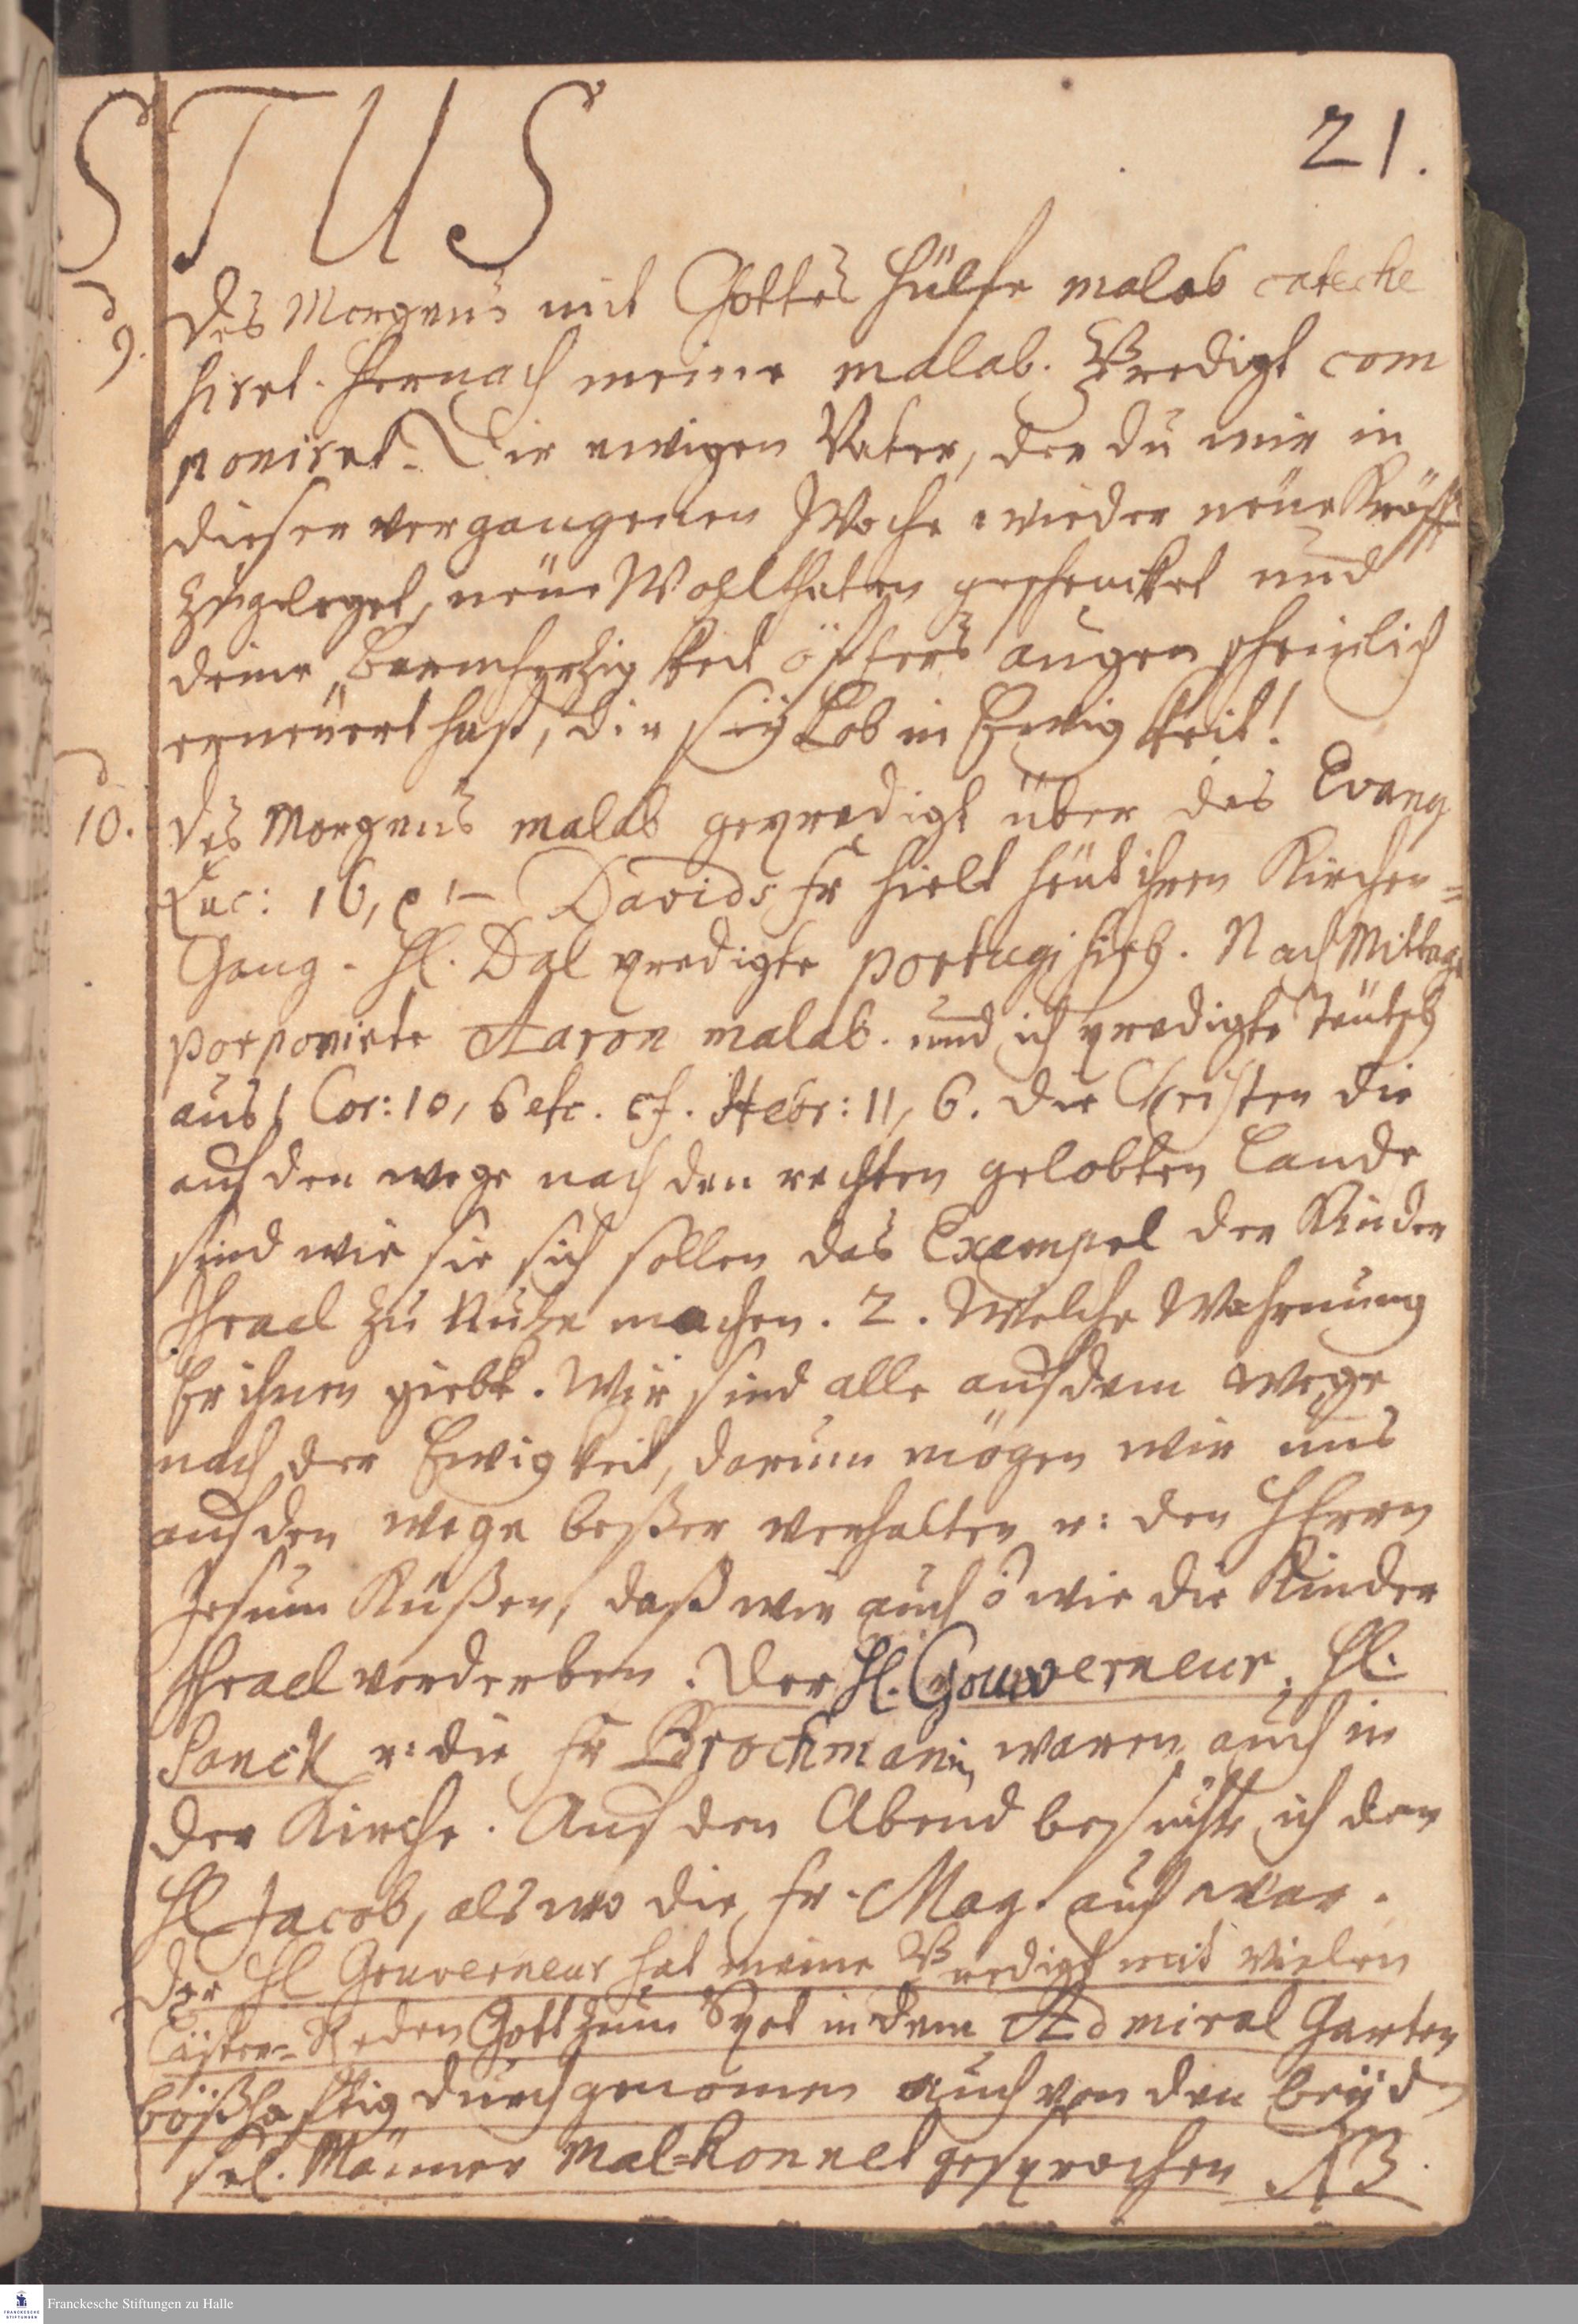 STUS
21.
9. des Morgens mit Gottes Hülfe malab cateche
hiret. Hernach meine malab. Predigt com
poniret. Dir ewigen Vater, der du mir in
dieser vergangenen Woche wieder neüe Kräfft
zugeleget, neüe Wohlthaten geschencket und
deine Barmhertzigkeit öffters augenscheinlich
erneüert hast, dir seÿ Lob in Ewigkeit!
10. des Morgens malab gepredigt über das Evang
Luc: 16, 1 Davids Fr hielt heüt ihren Kirchen-
Gang. H. Dal predigte portugisisch. NachMittage
porponirte Aaron malab. und ich predigte Teütsch
aus 1 Cor: 10, 6 etc. cf. Hebr: 11, 6. die Christen die
auf den wege nach den rechten gelobten Lande
sind wie sie sich sollen das Exempel der Kinder
Israel zu Nutze machen. 2. Welche Wahrnung
Er ihnen giebt. Wir sind alle auf dem wege
nach der Ewigkeit, darum mögen wir uns
auf den wege beßer verhalten u: den HErrn
Jesum Küßen, daß wir auch wie die Kinder
Israel verderben. Der H. Gouverneur, H.
Panck u: die Fr Brochmanin waren auch in
der Kirche. Auf den Abend besuchte ich den
H Jacob, alswo die Fr. Mag. auch war.
Der H Gouverneur hat meine Predigt mit vielen
Läster-Reden Gott zum Spot in dem Admiral Garten
bößhafftig durchgenomen auch von den beÿd
sel. Männer Mal-honnet gesprochen NB.
Franckesche Stiftungen zu Halle
FRANCKESCHE
STIFTUNGEN